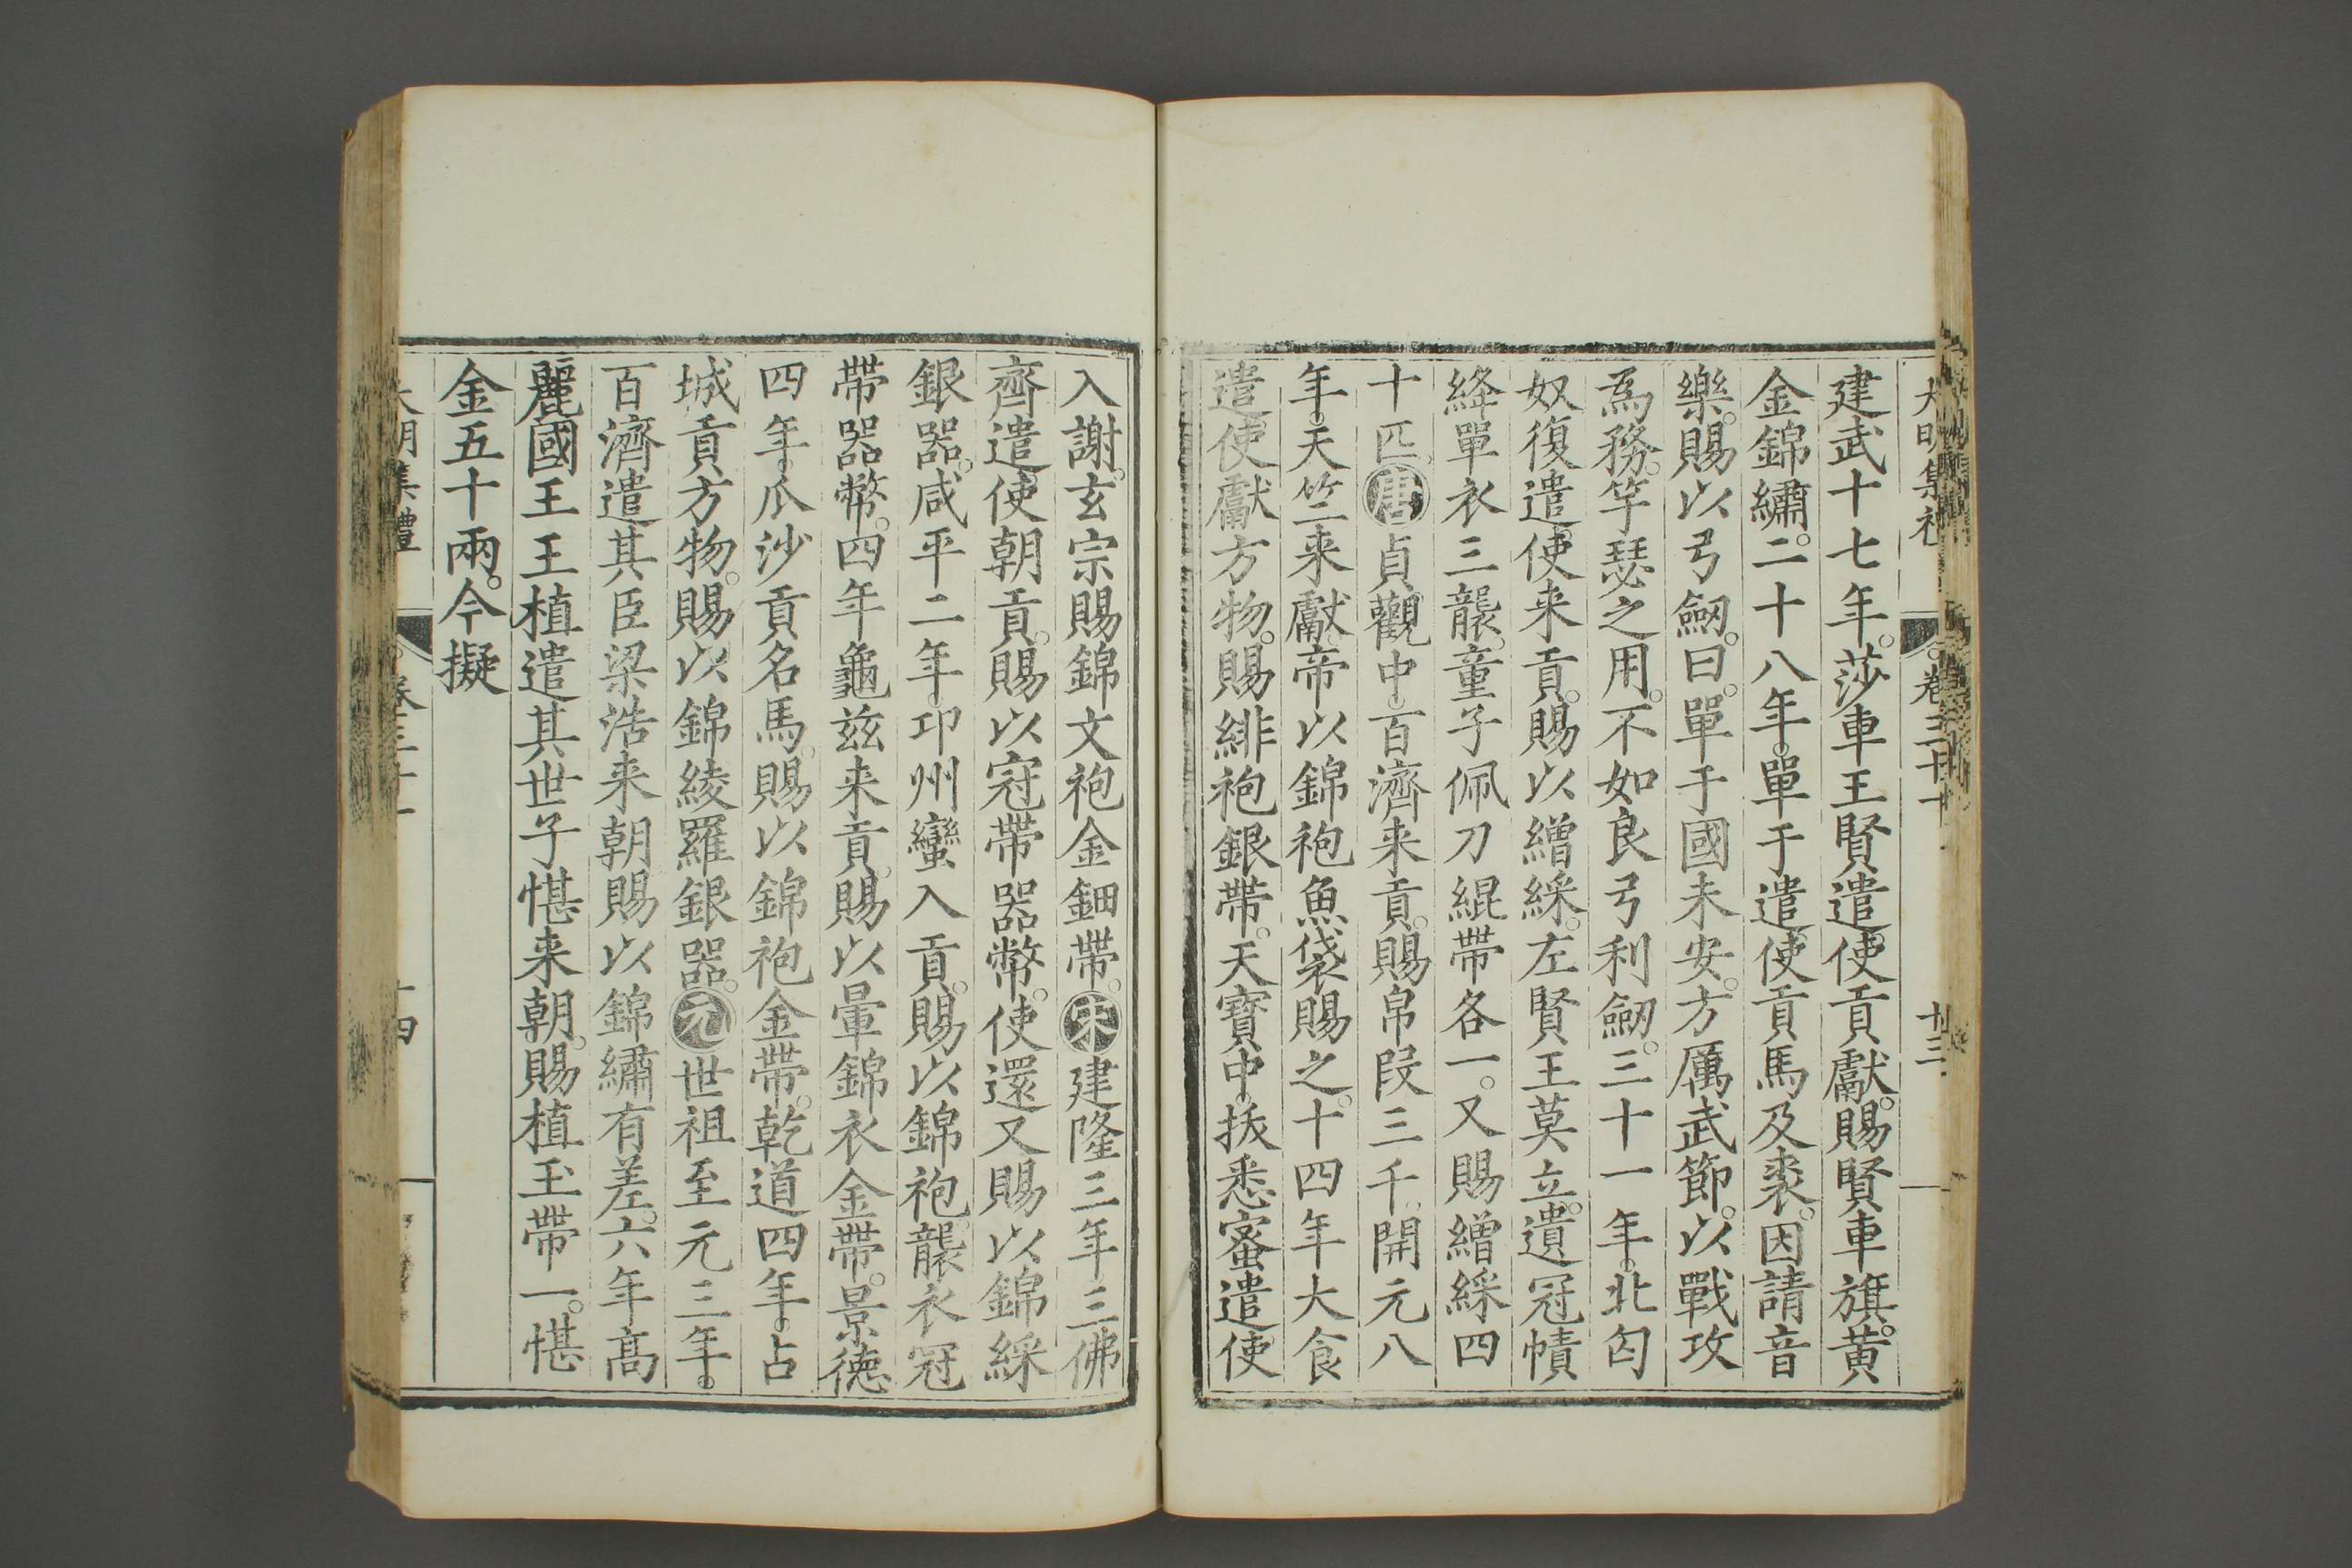 大明集礼 卷三十一 廿三
建武十七年莎車王賢遣使貢獻賜賢車旗黄
金錦繡二十八年單于遣使貢馬及裘因請音
樂賜以弓劒曰單于國未安方厲武節以戰攻
為務竽瑟之用不如良弓利劒三十一年北匈
奴復遣使来貢賜以繒綵左賢王莫立遺冠幘
絳單衣三襲童子佩刀緄帶各一又賜繒綵四
十匹唐貞觀中百濟来貢賜帛段三千開元八
年天竺来獻帝以錦袍魚袋賜之十四年大食
遣使獻方物賜緋袍銀帶天寶中拔悉蜜遣使
入謝玄宗賜錦文袍金鈿帶宋建隆三年三佛
齊遣使朝貢賜以冠帶器幣使還又賜以錦綵
銀器咸平二年卭州蠻入貢賜以錦袍襲衣冠
帶器幣四年龜兹来貢賜以暈錦衣金帶景徳
四年瓜沙貢名馬賜以錦袍金帶乾道四年占
城貢方物賜以錦綾羅銀器元世祖至元三年
百濟遣其臣梁浩来朝賜以錦繡有差六年髙
麗國王王植遣其世子愖来朝賜植玉帶一愖
金五十兩今擬
大明集禮 卷三十一 十四